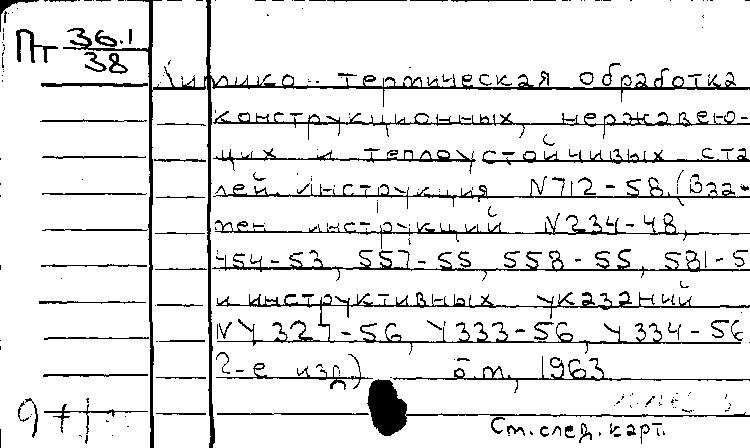 Пт 36.1
38
Химико-термическая обработка
конструкционных, нержавею-
щих и теплоустойчивых ста
лей. Инструкция N712-58. (Взa-
мен инструкций N234-48,
454-53, 557-55, 558-55, 581-5
и инструктивных указаний
NУ327-56, У333-56, У334-56
2-е изд.) б.м., 1963
См. след. карт.